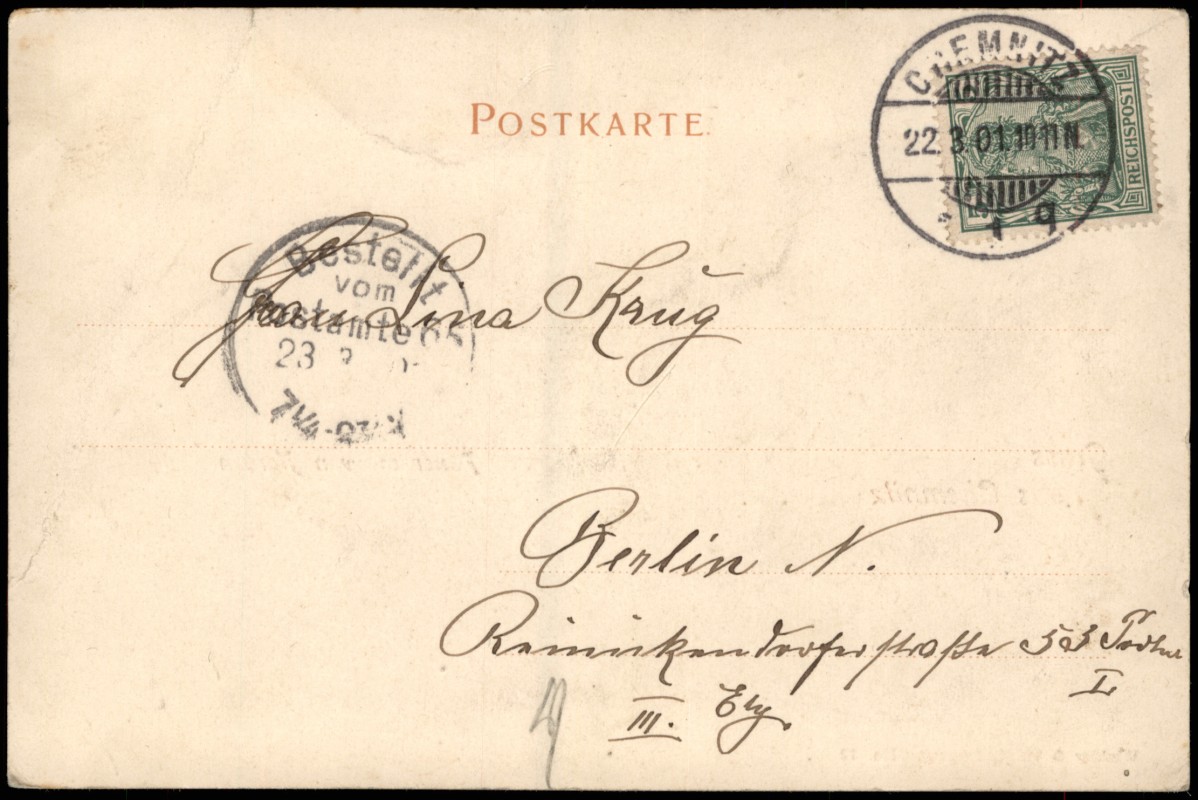 POSTKARTE.
CHEMNITZ
22.3.01.10-11N.
* 1 q
REICHSPOST
Bestellt
vom
Postamte 65
23 3
7¼-
Frau Lina Krug
Berlin N.
Reinickendorferstraße 53 Portal
I
III. Etg.
Chemnitz